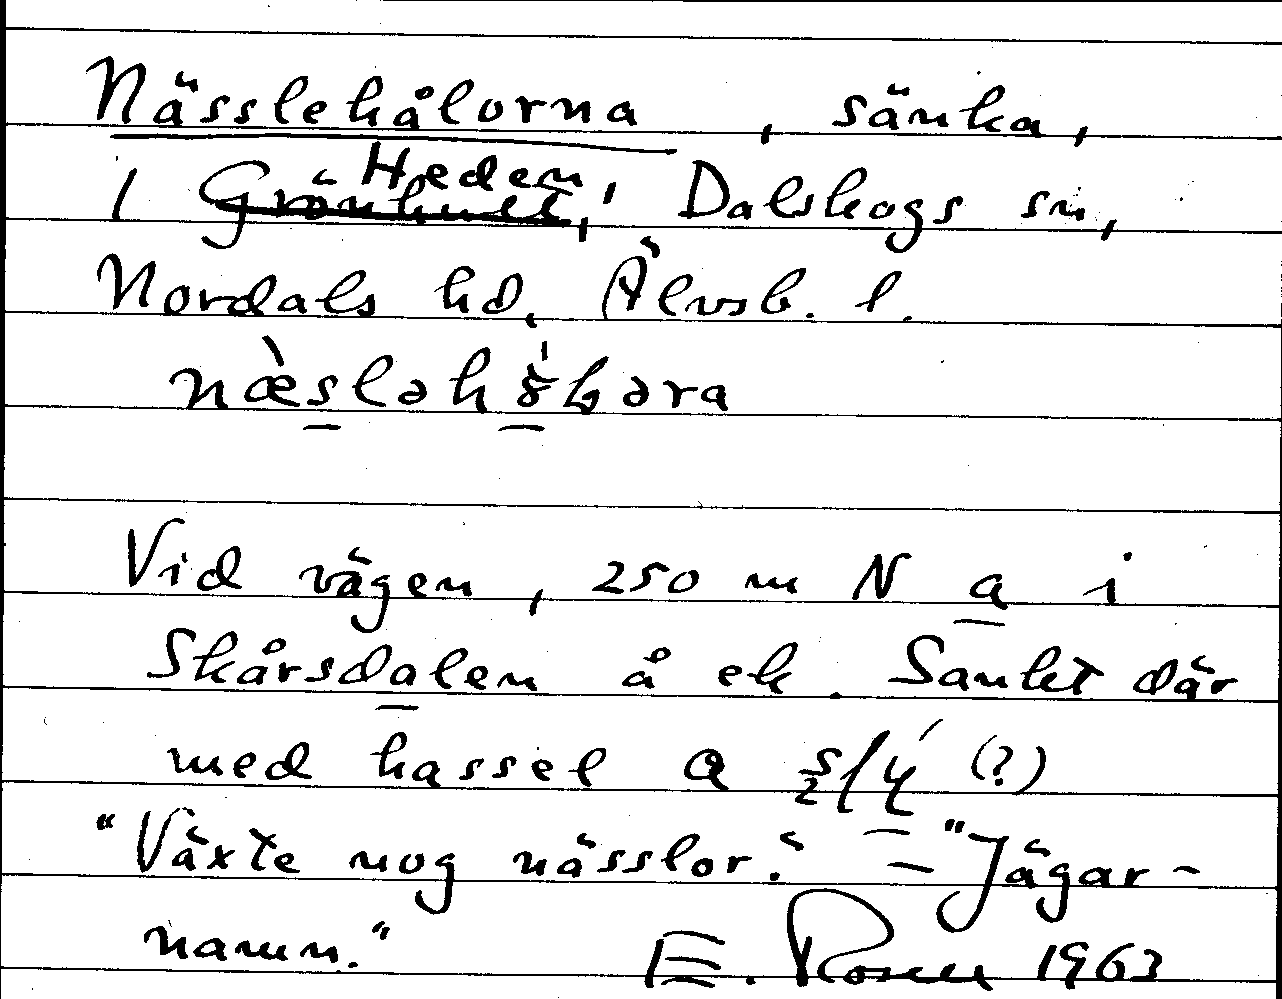 Nässlehålorna, sänka,
i Heden, Dalskogs sn,
Nordals hd, Älvsb. l.
Vid vägen, 250 m N a i
Skårsdalen å ek. Sankt där
med hassel a (?)
"Växte nog nässlor." – "Jägar-
namn." E. Rosell 1963